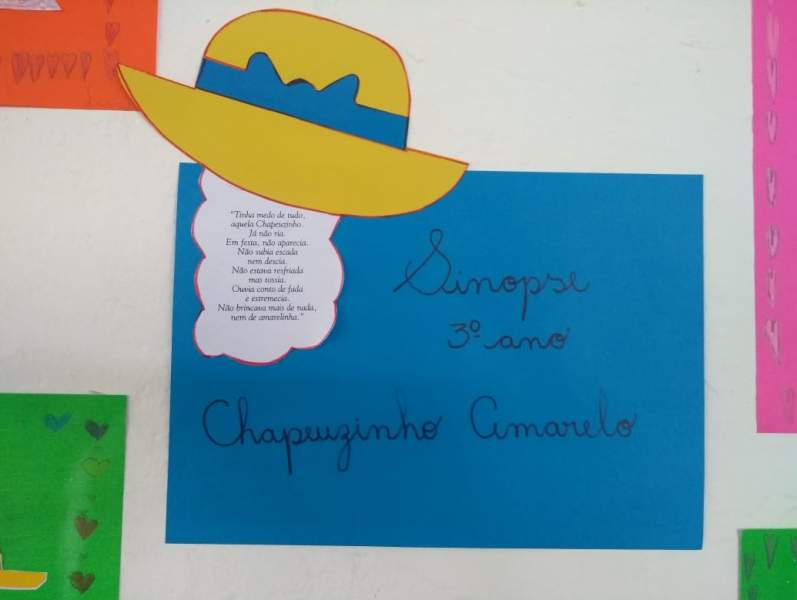 "Tinha medo de tudo,
aquela Chapeuzinho.
Já não ria.
Em festa, não aparecia.
Não subia escada
nem descia.
Não estava resfriada
mas tossia.
Ouvia conto de fada
e estremecia.
Não brincava mais de nada,
nem de amarelinha."
Sinopse
3º ano
Chapeuzinho Amarelo